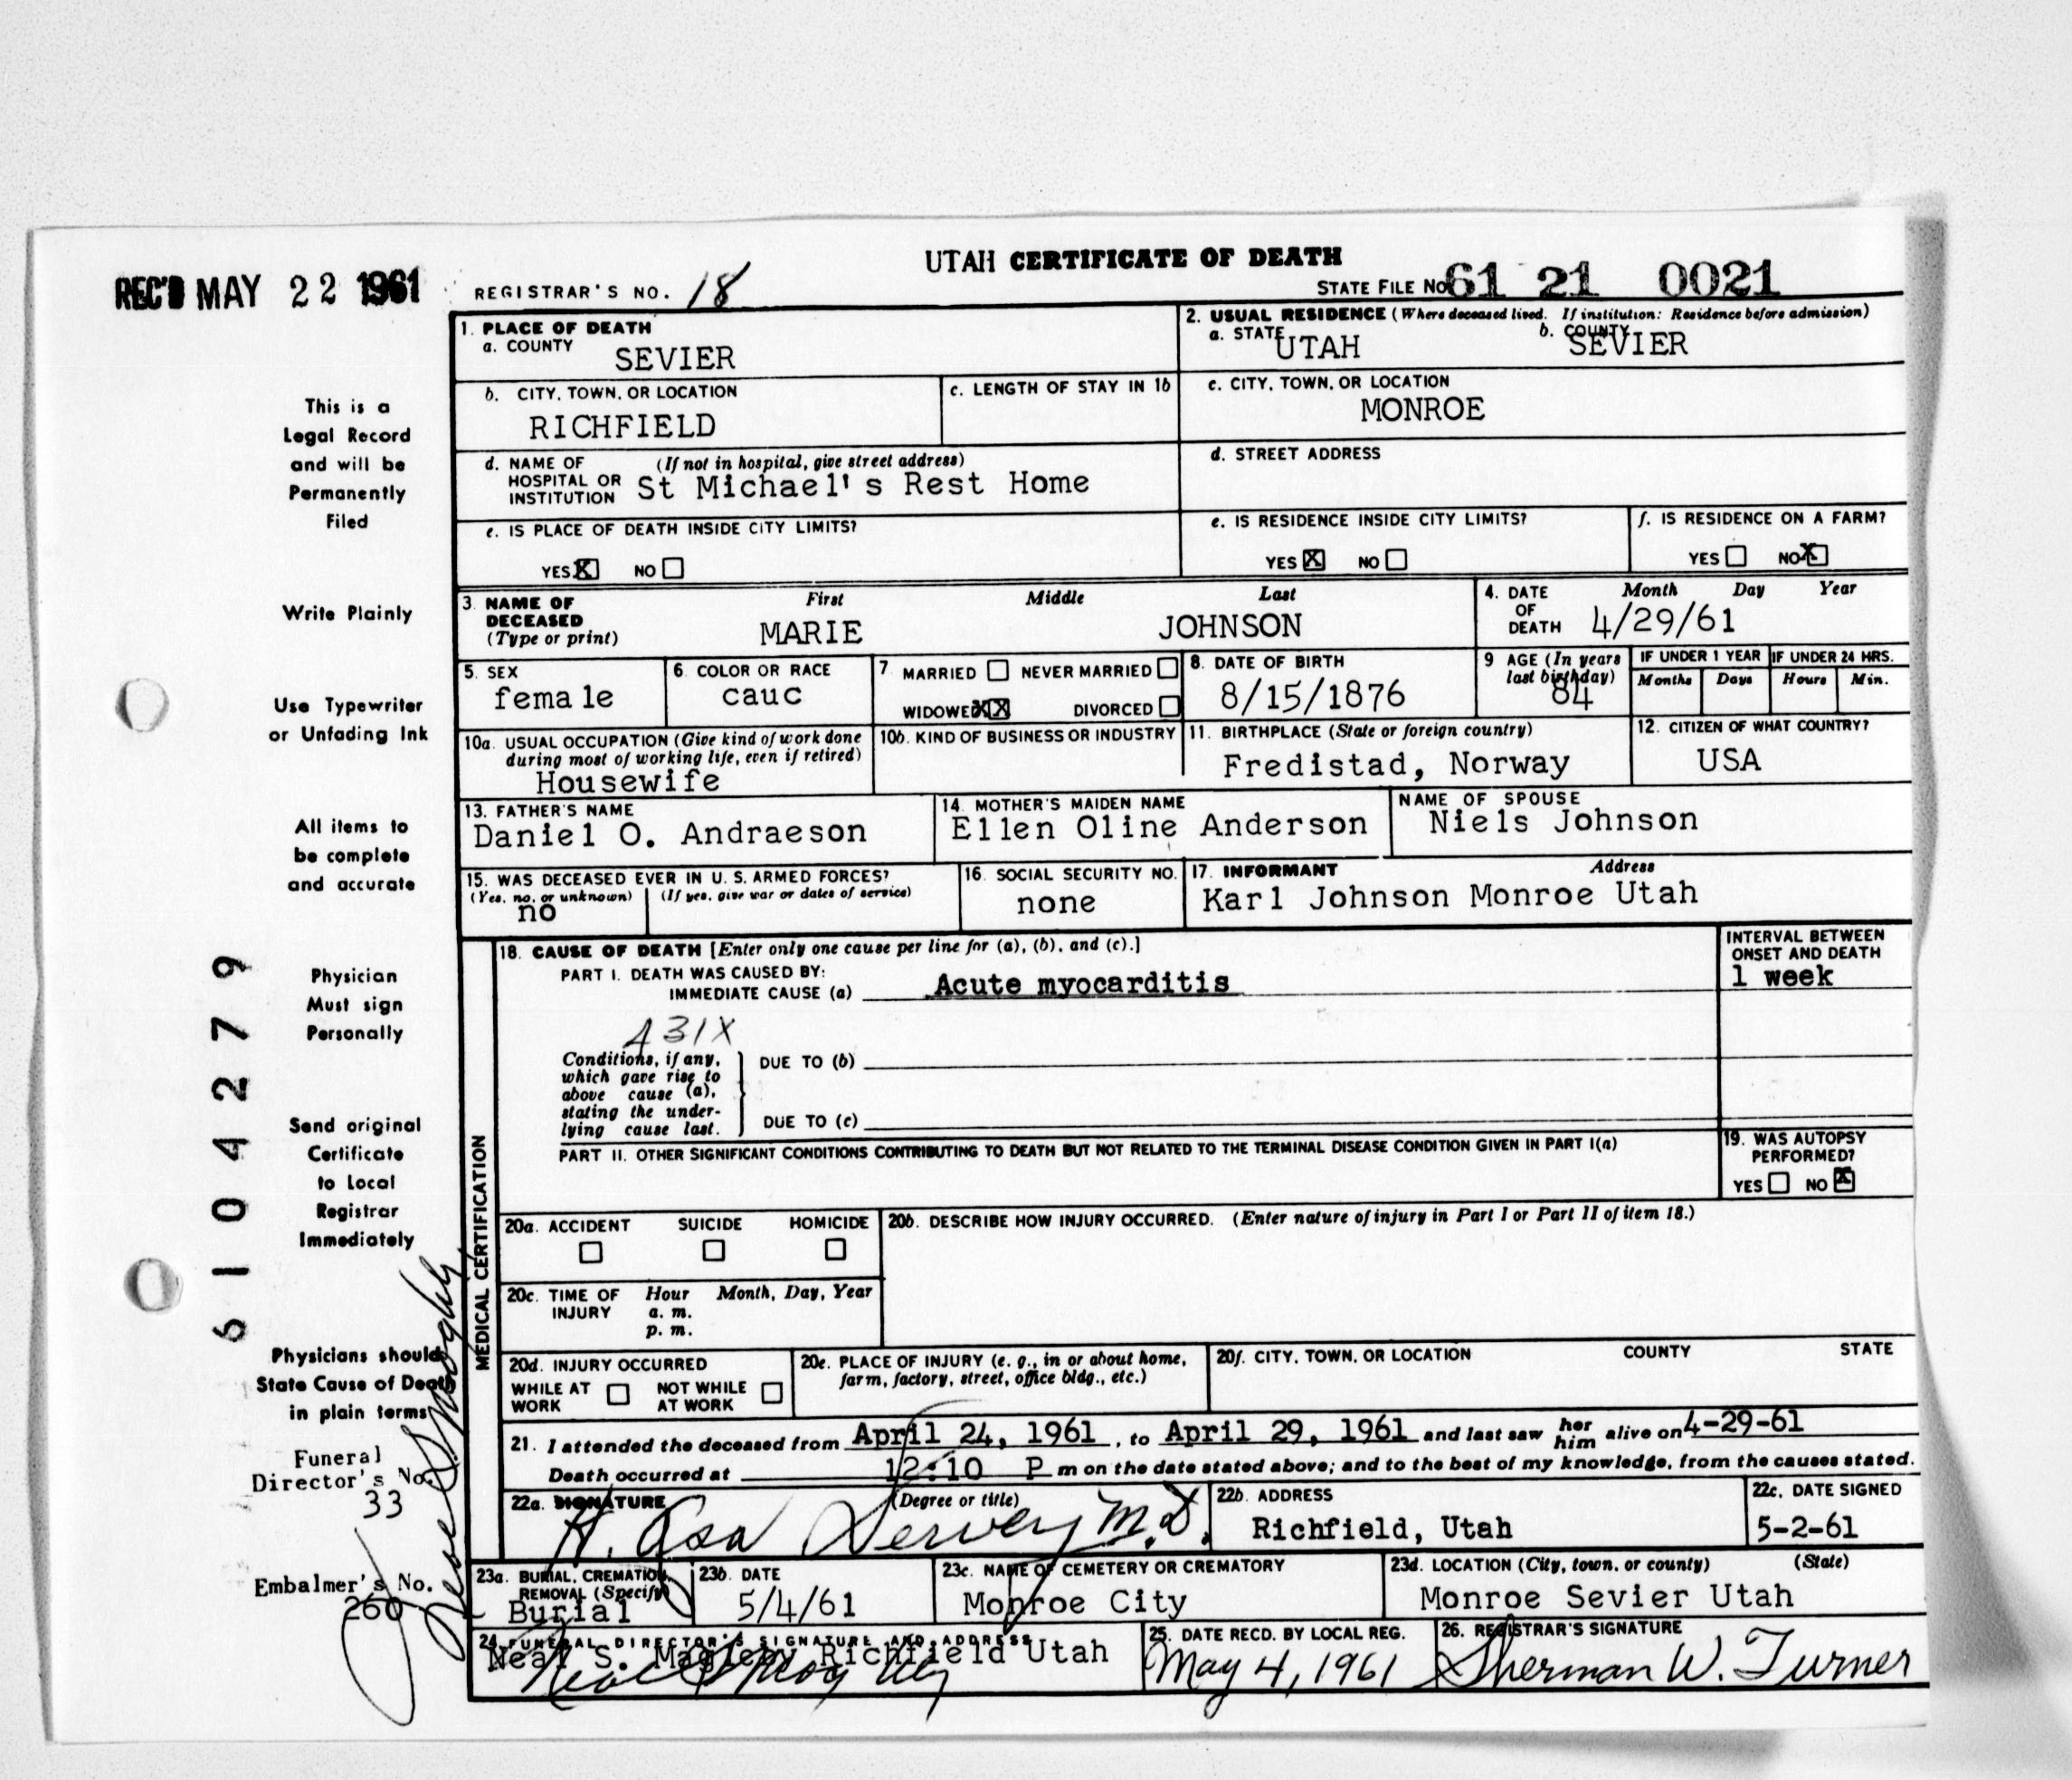 UTAH CERTIFICATE OF DEATH
REC'D MAY 22 1961
REGISTRAR'S NO. 18
STATE FILE NO 61 21 0021
1. PLACE OF DEATH
a. COUNTY
SEVIER
2. USUAL RESIDENCE (Where deceased lived. If institution: Residence before admission)
a. STATE UTAH b. COUNTY SEVIER
b. CITY, TOWN, OR LOCATION
RICHFIELD
c. LENGTH OF STAY IN 1b
c. CITY, TOWN, OR LOCATION
MONROE
d. NAME OF HOSPITAL OR INSTITUTION (If not in hospital, give street address)
St Michael's Rest Home
d. STREET ADDRESS
e. IS PLACE OF DEATH INSIDE CITY LIMITS?
YES X NO
e. IS RESIDENCE INSIDE CITY LIMITS?
YES X NO
f. IS RESIDENCE ON A FARM?
YES NO X
3. NAME OF DECEASED (Type or print)
First Middle Last
MARIE JOHNSON
4. DATE OF DEATH Month Day Year
4/29/61
5. SEX
female
6. COLOR OR RACE
cauc
7 MARRIED NEVER MARRIED
WIDOWED XX DIVORCED
8. DATE OF BIRTH
8/15/1876
9 AGE (In years last birthday)
84
IF UNDER 1 YEAR
Months Days
IF UNDER 24 HRS.
Hours Min.
10a. USUAL OCCUPATION (Give kind of work done during most of working life, even if retired)
Housewife
10b. KIND OF BUSINESS OR INDUSTRY
11. BIRTHPLACE (State or foreign country)
Fredistad, Norway
12. CITIZEN OF WHAT COUNTRY?
USA
13. FATHER'S NAME
Daniel O. Andraeson
14. MOTHER'S MAIDEN NAME
Ellen Oline Anderson
NAME OF SPOUSE
Niels Johnson
15. WAS DECEASED EVER IN U. S. ARMED FORCES?
(Yes, no, or unknown) (If yes, give war or dates of service)
no
16. SOCIAL SECURITY NO.
none
17. INFORMANT Address
Karl Johnson Monroe Utah
MEDICAL CERTIFICATION
18. CAUSE OF DEATH [Enter only one cause per line for (a), (b), and (c).]
PART I. DEATH WAS CAUSED BY:
IMMEDIATE CAUSE (a) Acute myocarditis
INTERVAL BETWEEN ONSET AND DEATH
1 week
431X
Conditions, if any, which gave rise to above cause (a), stating the underlying cause last.
DUE TO (b)
DUE TO (c)
PART II. OTHER SIGNIFICANT CONDITIONS CONTRIBUTING TO DEATH BUT NOT RELATED TO THE TERMINAL DISEASE CONDITION GIVEN IN PART I(a)
19. WAS AUTOPSY PERFORMED?
YES NO X
20a. ACCIDENT SUICIDE HOMICIDE
20b. DESCRIBE HOW INJURY OCCURRED. (Enter nature of injury in Part I or Part II of item 18.)
20c. TIME OF INJURY Hour Month, Day, Year
a. m.
p. m.
20d. INJURY OCCURRED
WHILE AT WORK NOT WHILE AT WORK
20e. PLACE OF INJURY (e. g., in or about home, farm, factory, street, office bldg., etc.)
20f. CITY, TOWN, OR LOCATION COUNTY STATE
21. I attended the deceased from April 24, 1961, to April 29, 1961 and last saw her him alive on 4-29-61
Death occurred at 12:10 P m on the date stated above; and to the best of my knowledge, from the causes stated.
22a. SIGNATURE (Degree or title)
H. Asa Dervey M.D.
22b. ADDRESS
Richfield, Utah
22c. DATE SIGNED
5-2-61
23a. BURIAL, CREMATION, REMOVAL (Specify)
Burial
23b. DATE
5/4/61
23c. NAME OF CEMETERY OR CREMATORY
Monroe City
23d. LOCATION (City, town, or county) (State)
Monroe Sevier Utah
24. FUNERAL DIRECTOR'S SIGNATURE AND ADDRESS
Neal S. Magleby Richfield Utah
Neal S Magleby
25. DATE RECD. BY LOCAL REG.
May 4, 1961
26. REGISTRAR'S SIGNATURE
Sherman W. Turner
This is a
Legal Record
and will be
Permanently
Filed
Write Plainly
Use Typewriter
or Unfading Ink
All items to
be complete
and accurate
Physician
Must sign
Personally
Send original
Certificate
to Local
Registrar
Immediately
Physicians should
State Cause of Death
in plain terms
Funeral
Director's No.
33
Embalmer's No.
260
Neal S Magleby
61 04279